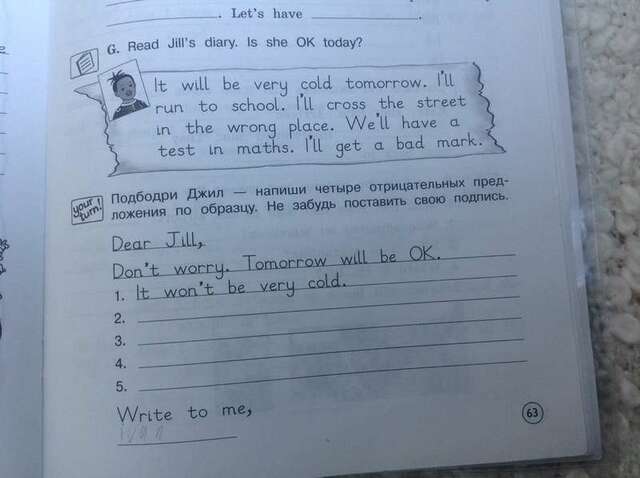 . Let's have .
G. Read Jill's diary. Is she OK today?
It will be very cold tomorrow. I'll
run to school. I'll cross the street
in the wrong place. We'll have a
test in maths. I'll get a bad mark.
your turn!
Подбодри Джил — напиши четыре отрицательных пред-
ложения по образцу. Не забудь поставить свою подпись.
Dear Jill,
Don't worry. Tomorrow will be OK.
1. It won't be very cold.
2.
3.
4.
5.
Write to me,
63